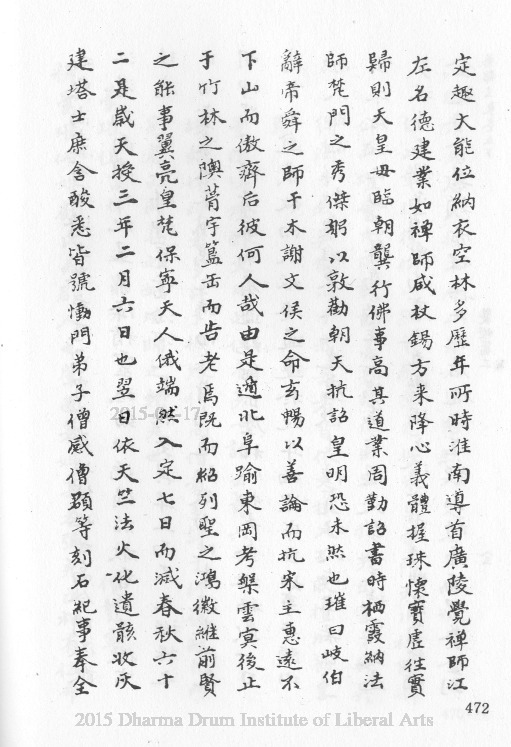 定趣大能位納衣空林多歷年所時淮南導首廣陵覺禪師江
左名德建業如禪師咸杖錫方来降心義體握珠懷寶虛往實
歸則天皇母臨朝龔行佛事高其道業周勤詔書時栖霞納法
師梵門之秀傑躬以敦勸朝天抗詔皇明恐未然也璀曰岐伯
辭帝舜之師干木謝文侯之命玄暢以善論而抗宋主惠遠不
下山而傲齊后彼何人哉由是遁北阜踰東岡考槃雲冥後止
于竹林之隩葺宇簋缶而告老焉既而紹列聖之鴻徽維前賢
之能事翼亮皇梵保寧天人俄端然入定七日而滅春秋六十
二是歲天授三年二月六日也翌日依天竺法火化遺骸收灰
建塔士庶含酸悉皆號慟門弟子僧感僧顥等刻石紀事奉全
472
2015-04-17
2015 Dharma Drum Institute of Liberal Arts